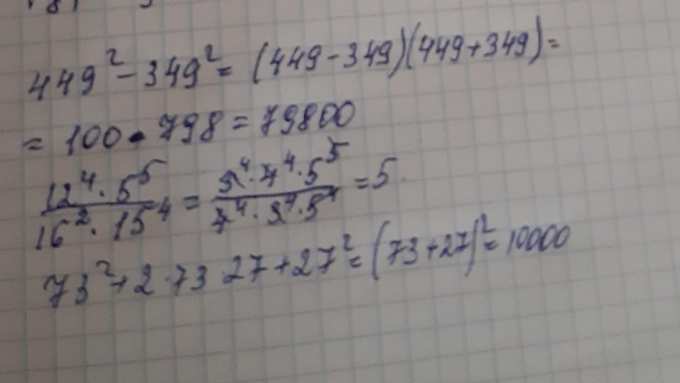 449² - 349² = (449 - 349)(449 + 349) =
= 100 • 798 = 79800
12⁴ · 5⁵ / 16² · 15⁴ = 3⁴ · 4⁴ · 5⁵ / 4⁴ · 3⁴ · 5⁴ = 5
73² + 2 · 73 27 + 27² = (73 + 27)² = 10000